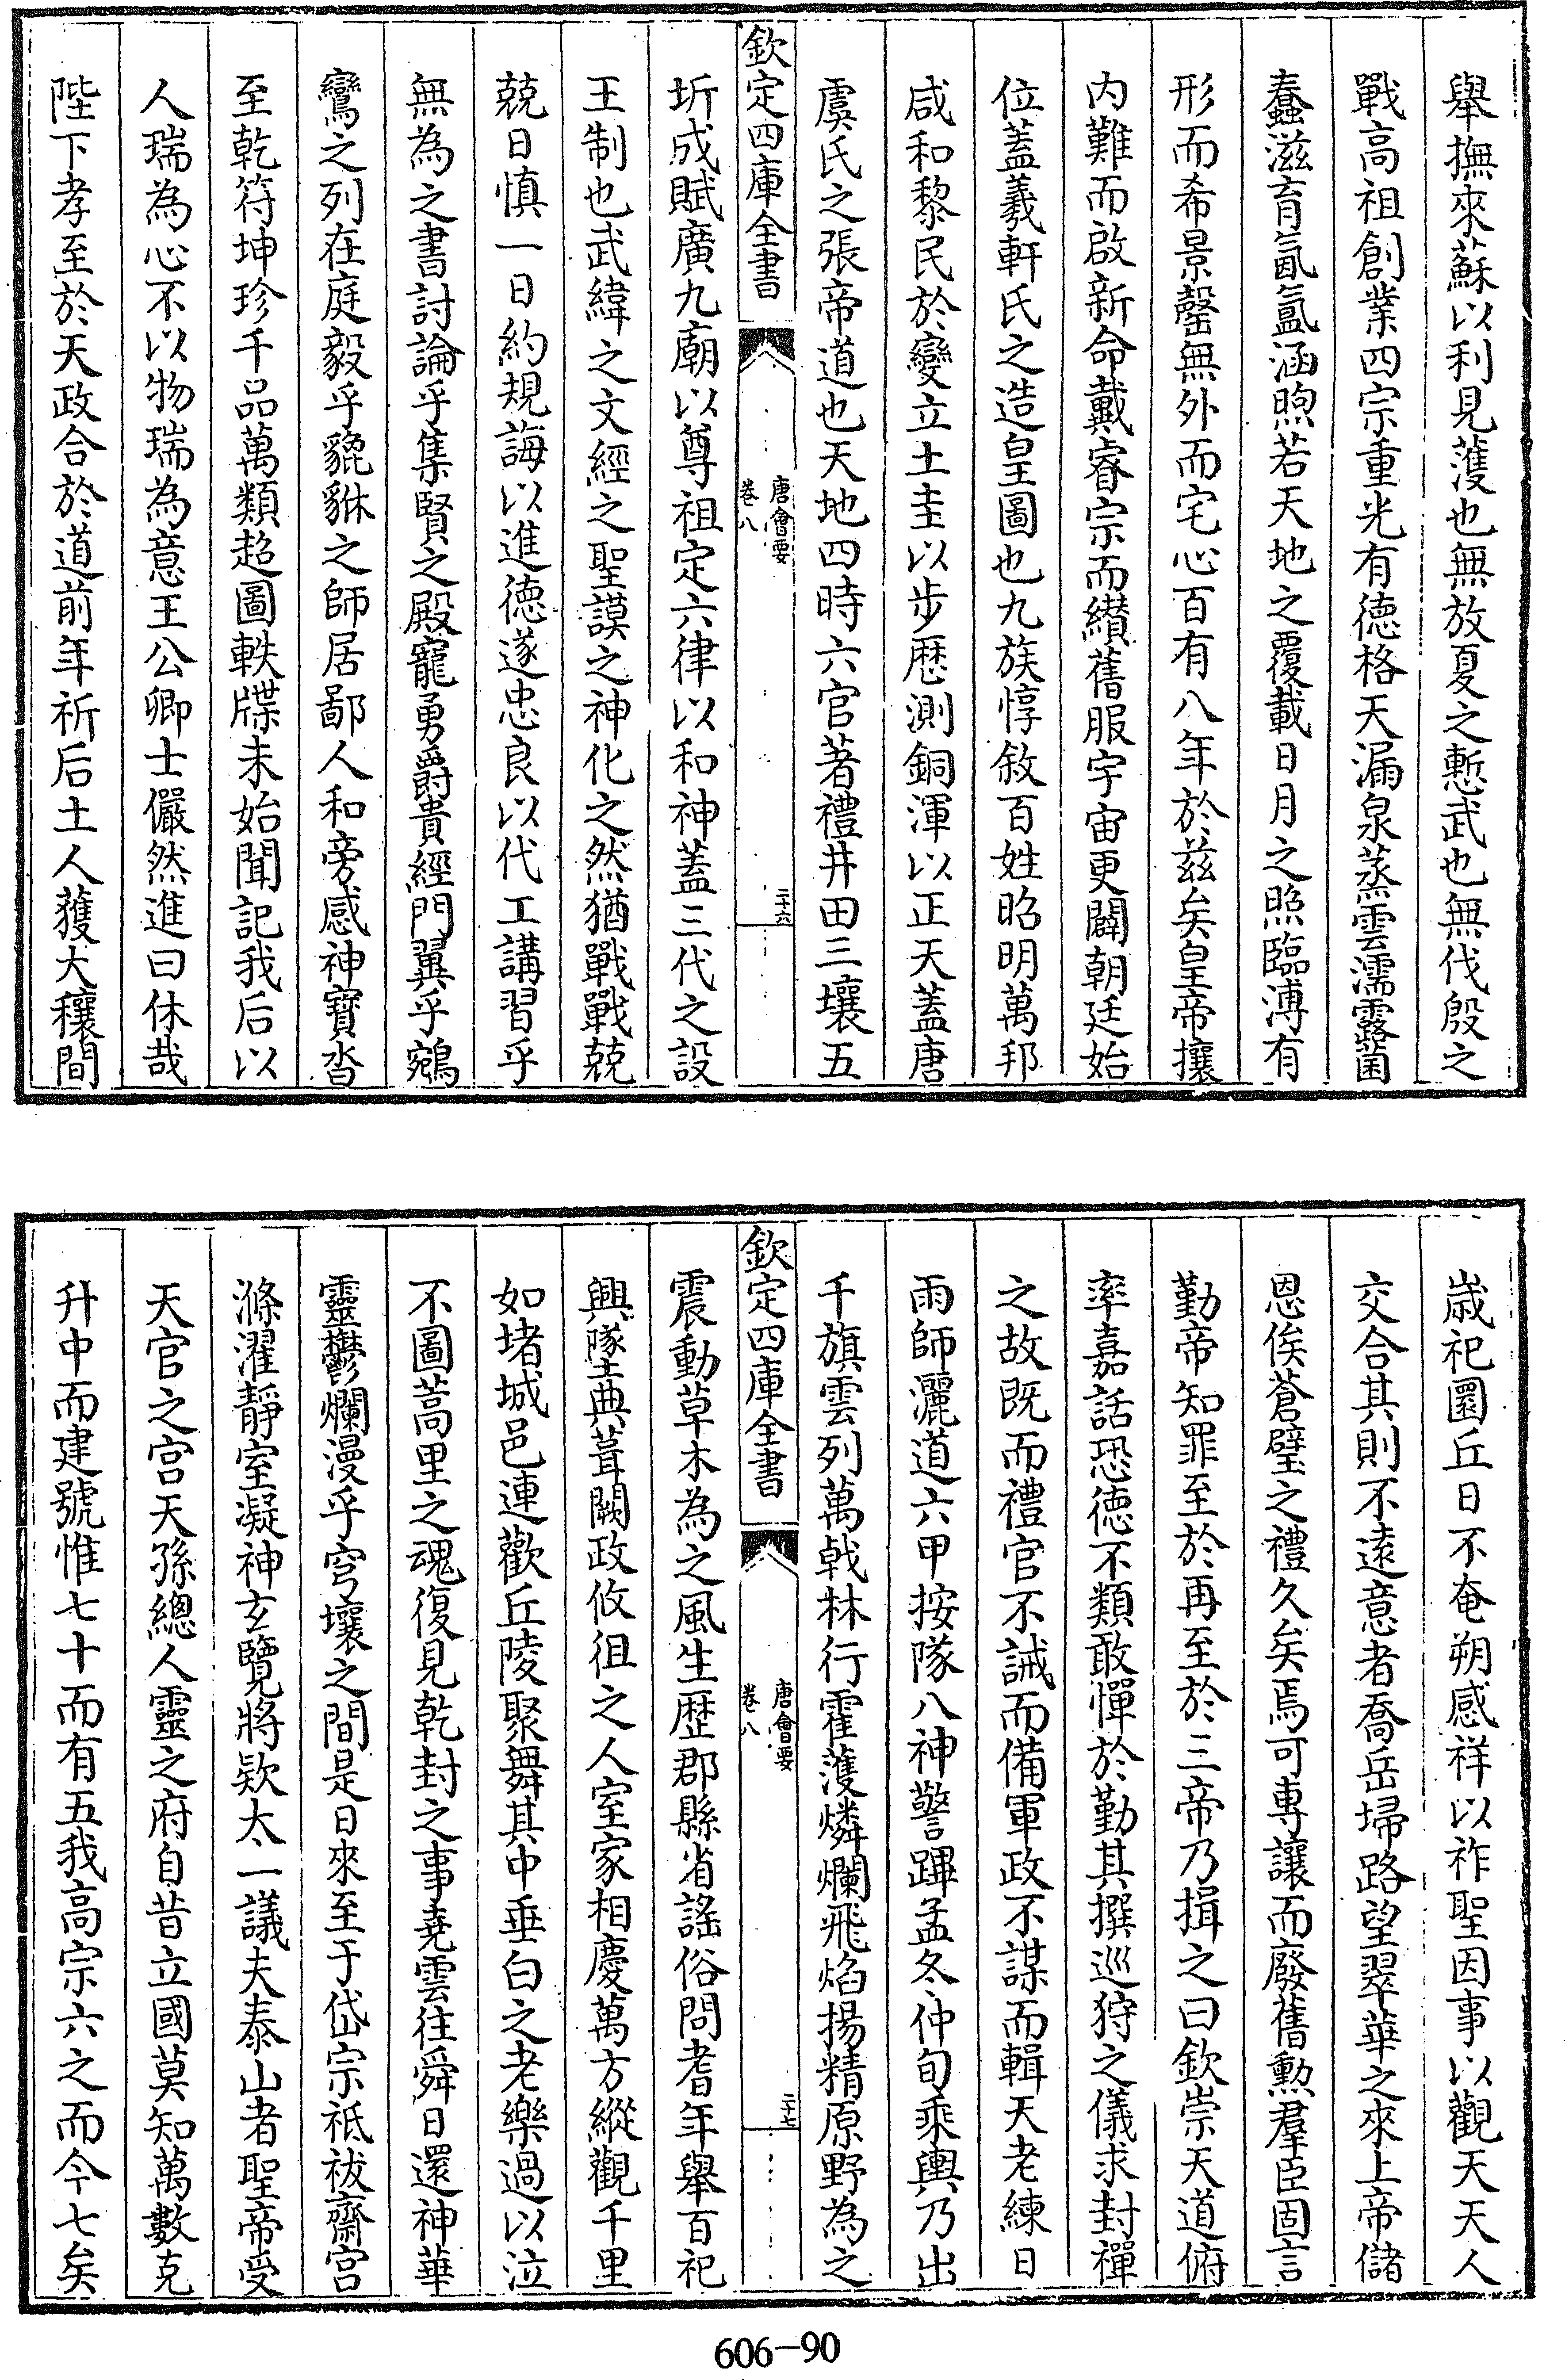 舉撫來蘇以利見濩也無放夏之慙武也無伐殷之
戰高祖創業四宗重光有德格天漏泉蒸雲濡露菌
蠢滋育氤氳涵煦若天地之覆載日月之照臨溥有
形而希景罄無外而宅心百有八年於茲矣皇帝攘
内難而啟新命戴睿宗而纉舊服宇宙更闢朝廷始
位蓋羲軒氏之造皇圖也九族惇敘百姓昭明萬邦
咸和黎民於變立土圭以步歴測銅渾以正天蓋唐
虞氏之張帝道也天地四時六官著禮井田三壤五
欽定四庫全書
唐會要
卷八
二十六
圻成賦廣九廟以尊祖定六律以和神蓋三代之設
王制也武緯之文經之聖謨之神化之然猶戰戰兢
兢日慎一日約規誨以進德遂忠良以代工講習乎
無為之書討論乎集賢之殿寵勇爵貴經門翼乎鵷
鸞之列在庭毅乎貔貅之師居鄙人和旁感神寶沓
至乾符坤珍千品萬類超圖軼牒未始聞記我后以
人瑞為心不以物瑞為意王公卿士儼然進曰休哉
陛下孝至於天政合於道前年祈后土人獲大穰間
歳祀圜丘日不奄朔感祥以祚聖因事以觀天天人
交合其則不逺意者喬岳埽路望翠華之來上帝儲
恩俟蒼璧之禮久矣焉可專讓而廢舊勲羣臣固言
勤帝知罪至於再至於三帝乃揖之曰欽崇天道俯
率嘉話恐德不類敢憚於勤其撰巡狩之儀求封禪
之故既而禮官不誡而備軍政不謀而輯天老練日
雨師灑道六甲按隊八神警蹕孟冬仲旬乘輿乃出
千旗雲列萬戟林行霍濩燐爛飛焰揚精原野為之
欽定四庫全書
唐會要
卷八
二十七
震動草木為之風生歴郡縣省謠俗問耆年舉百祀
興墜典葺闕政攸徂之人室家相慶萬方縱觀千里
如堵城邑連歡丘陵聚舞其中垂白之老樂過以泣
不圖蒿里之魂復見乾封之事堯雲往舜日還神華
靈鬱爛漫乎穹壤之間是日來至于岱宗祗祓齋宮
滌濯靜室凝神玄覽將欵太一議夫泰山者聖帝受
天官之宫天孫總人靈之府自昔立國莫知萬數克
升中而建號惟七十而有五我高宗六之而今七矣
606-90